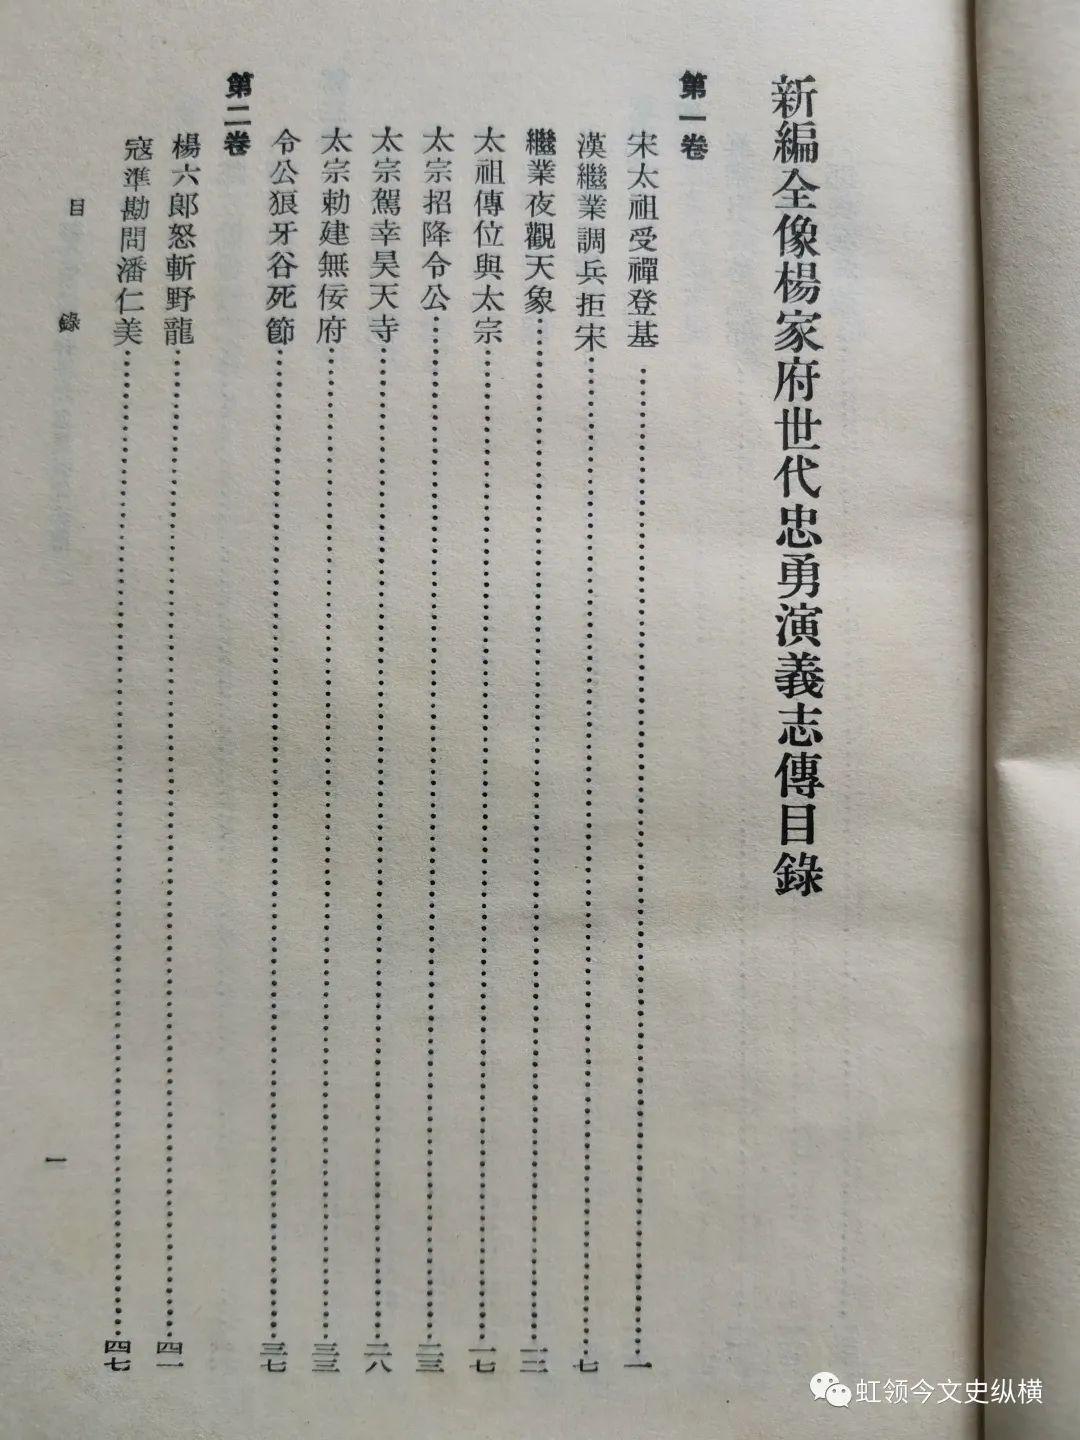 新編全像楊家府世代忠勇演義志傳目錄
第一卷
宋太祖受禪登基……一
漢繼業調兵拒宋……七
繼業夜觀天象……一二
太祖傳位與太宗……一七
太宗招降令公……二三
太宗駕幸昊天寺……二八
太宗勅建無佞府……三三
令公狼牙谷死節……三七
第二卷
楊六郎怒斬野龍……四一
寇準勘問潘仁美……四七
目錄
一
虹领今文史纵横